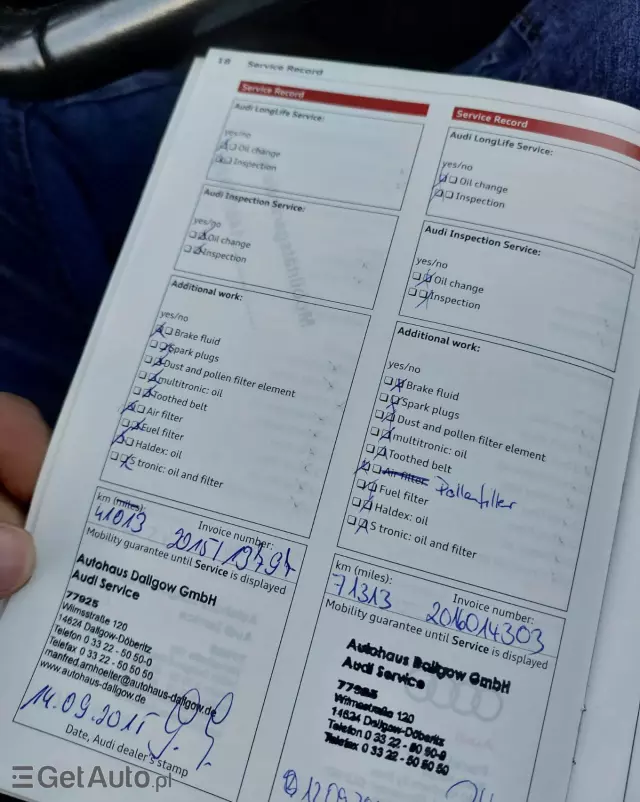 18 Service Record
Service Record
Audi LongLife Service:
yes/no
Oil change
Inspection
Audi Inspection Service:
yes/no
Oil change
Inspection
Additional work:
yes/no
Brake fluid
Spark plugs
Dust and pollen filter element
multitronic: oil
Toothed belt
Air filter
Fuel filter
Haldex: oil
S tronic: oil and filter
km (miles): Invoice number:
41013 2015/
Mobility guarantee until Service is displayed
Autohaus Dallgow GmbH
Audi Service
77925
Wilmsstraße 120
14624 Dallgow-Döberitz
Telefon 0 33 22 - 50 50-0
Telefax 0 33 22 - 50 50 50
manfred.arnhoelter@autohaus-dallgow.de
www.autohaus-dallgow.de
14.09.2015
Date, Audi dealer's stamp
Service Record
Audi LongLife Service:
yes/no
Oil change
Inspection
Audi Inspection Service:
yes/no
Oil change
Inspection
Additional work:
yes/no
Brake fluid
Spark plugs
Dust and pollen filter element
multitronic: oil
Toothed belt
Air filter Pollenfilter
Fuel filter
Haldex: oil
S tronic: oil and filter
km (miles): Invoice number:
71313 2016014303
Mobility guarantee until Service is displayed
Autohaus Dallgow GmbH
Audi Service
77925
Wilmsstraße 120
14624 Dallgow-Döberitz
Telefon 0 33 22 - 50 50-0
Telefax 0 33 22 - 50 50 50
GetAuto.pl